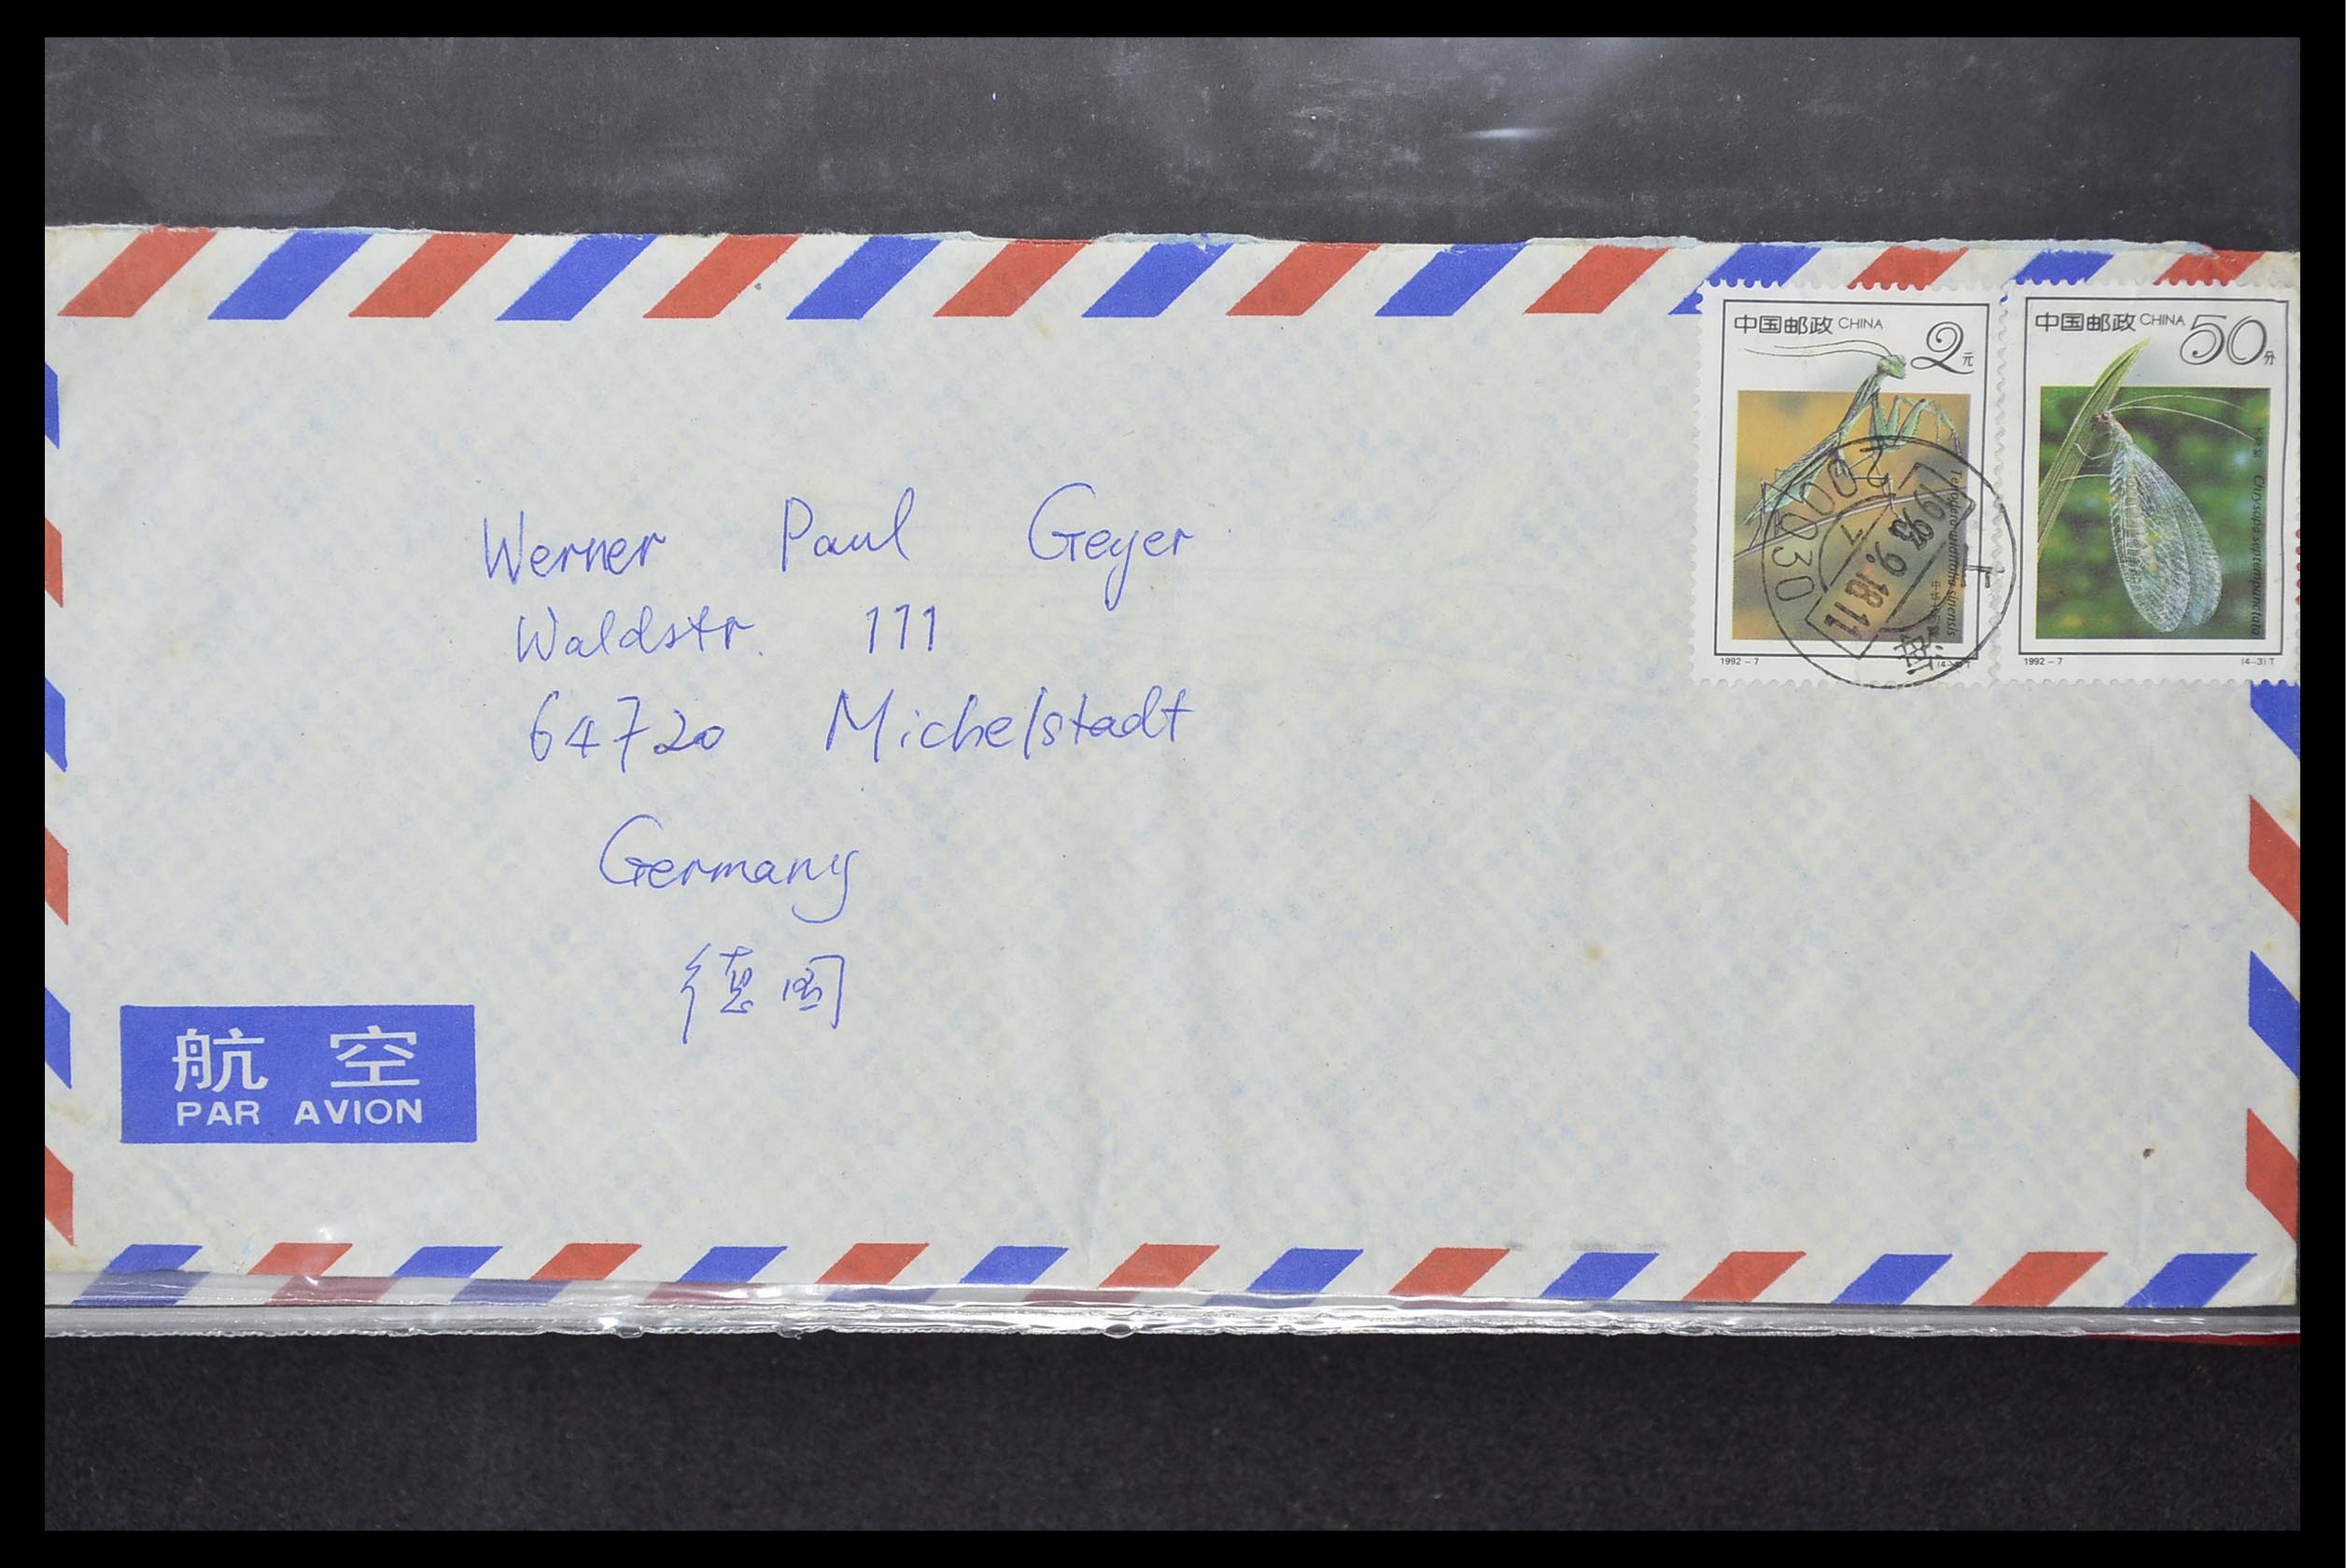 中国邮政 CHINA 2元
Tenodera aridifolia sinensis
1992-7
中国邮政 CHINA 50分
Chrysopa septempunctata
1992-7 (4-3) T
上海
200030
1993.9.18.11
Werner Paul Geyer
Waldstr. 111
64720 Michelstadt
Germany
德国
航空
PAR AVION